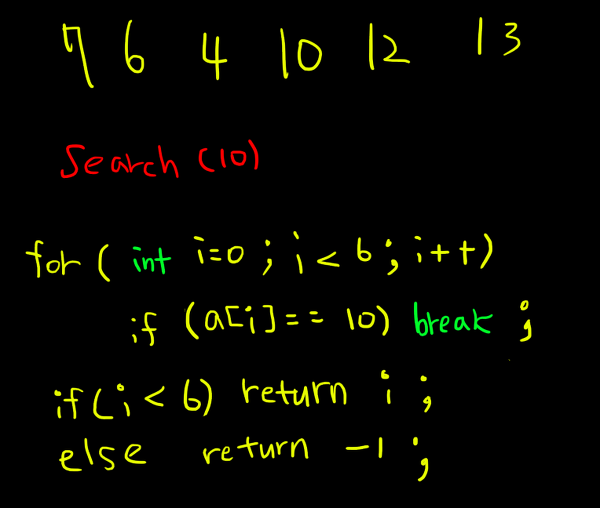 7 6 4 10 12 13
Search (10)
for ( int i=0 ; i < 6 ; i++)
if (a[i] == 10) break ;
if(i < 6) return i ;
else return -1 ;